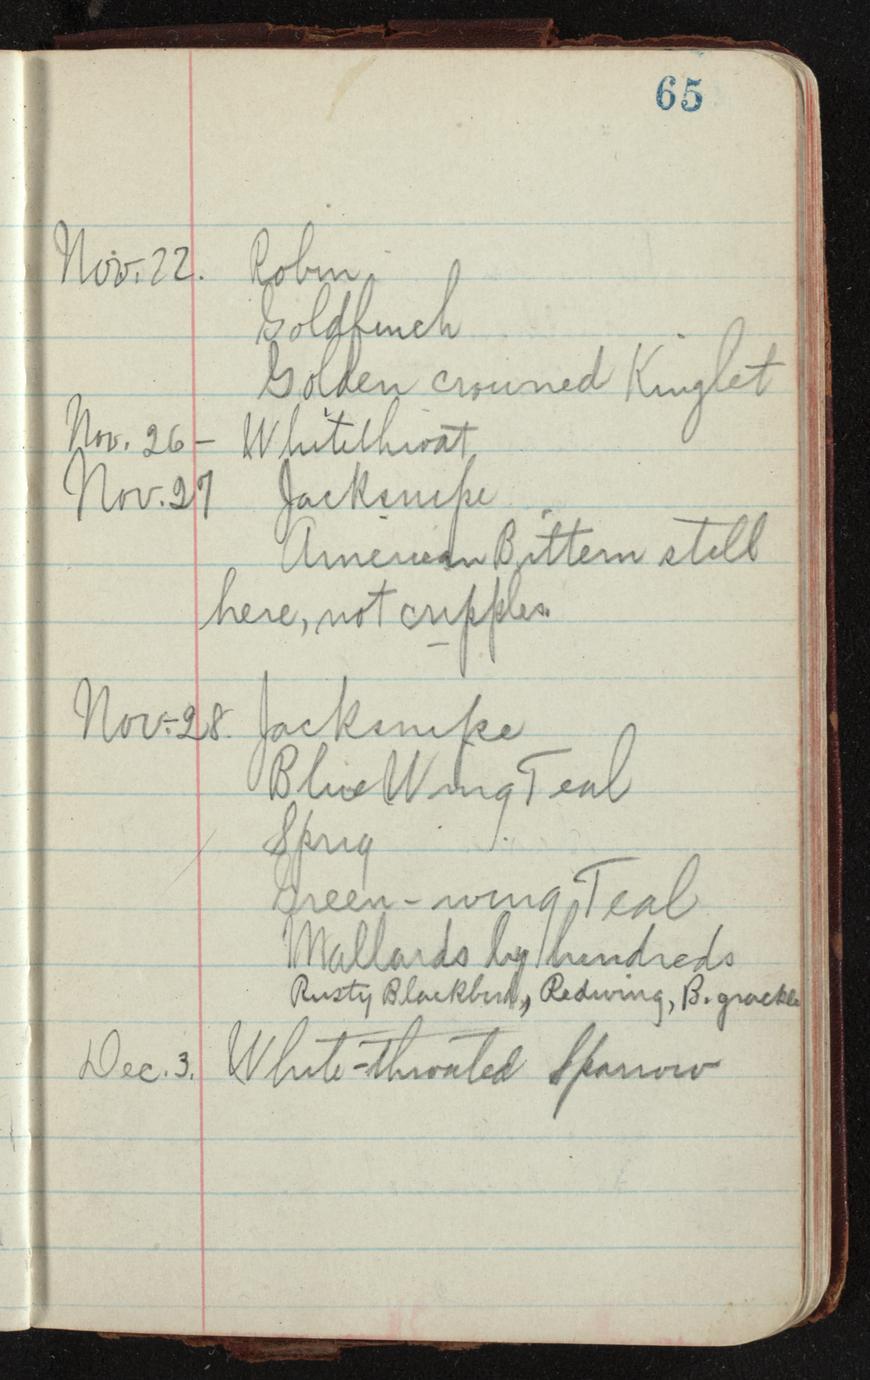 65
Nov. 22. Robin
Goldfinch
Golden crowned Kinglet
Nov. 26 - Whitethroat
Nov. 27 Jacksnipe
American Bittern still
here, not cripples.
Nov. 28. Jacksnipe
Blue Wing Teal
Sprig
Green-wing Teal
Mallards by hundreds
Rusty Blackbird, Redwing, B. grackle
Dec. 3. White-throated Sparrow